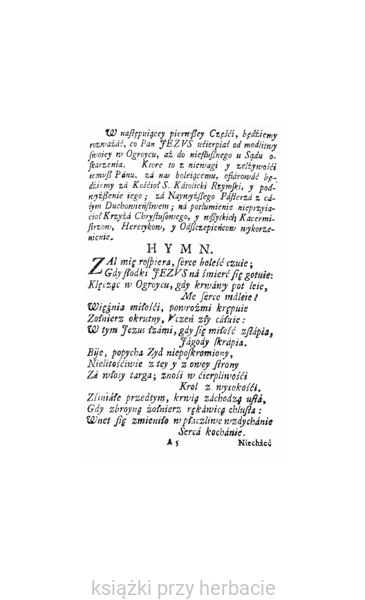 W następuiącey pierwſzey Częśći, będźiemy
rozważáć, co Pan JEZVS ućierpiał od modlitwy
ſwoiey w Ogroycu, aż do nieſłuſznego u Sądu o-
ſkarżenia. Ktore to z niewagi y zelżywośći
temuſz Pánu. zá nas boleiącemu, ofiárowáć bę-
dźiemy zá Kośćioł S. Kátolicki Rzymſki, y pod-
nyżſzenie iego; zá Naynyżſzego Páſterzá z cá-
łym Duchowieńſtwem; ná potłumienie nieprzyia-
ćioł Krzyżá Chryſtuſowego, y nſzytkich Kacermi-
ſtrzow, Heretykow, y Odſzczepieńcow wykorze-
nienie.
HYMN.
ZAl mię roſpiera, ſerce boleść czuie;
Gdy ſłodki JEZVS ná śmierć ſię gotuie:
Klęcząc w Ogroycu, gdy krwáwy pot leie,
Me ſerce mdleie!
Więźnia miłośći, powrozmi krępuie
Żołnierz okrutny, Vczeń zły cáłuie:
W tym Jezus łzámi, gdy ſię miłość zſtápia,
Jágody ſkrapia.
Biie, popycha Zyd niepoſkromiony,
Nielitośćiwie z tey y z owey ſtrony
Zá włoſy targa; znoſi w ćierpliwośći
Krol z wyſokośći.
Zśiniałe przedtym, krwią záchodzą uſtá,
Gdy zbroyną żołnierz rękáwicą chluſta:
Wnet ſię zmieniło w płaczliwe wzdychánie
Sercá kochánie.
A5 Niechżeć
książki przy herbacie